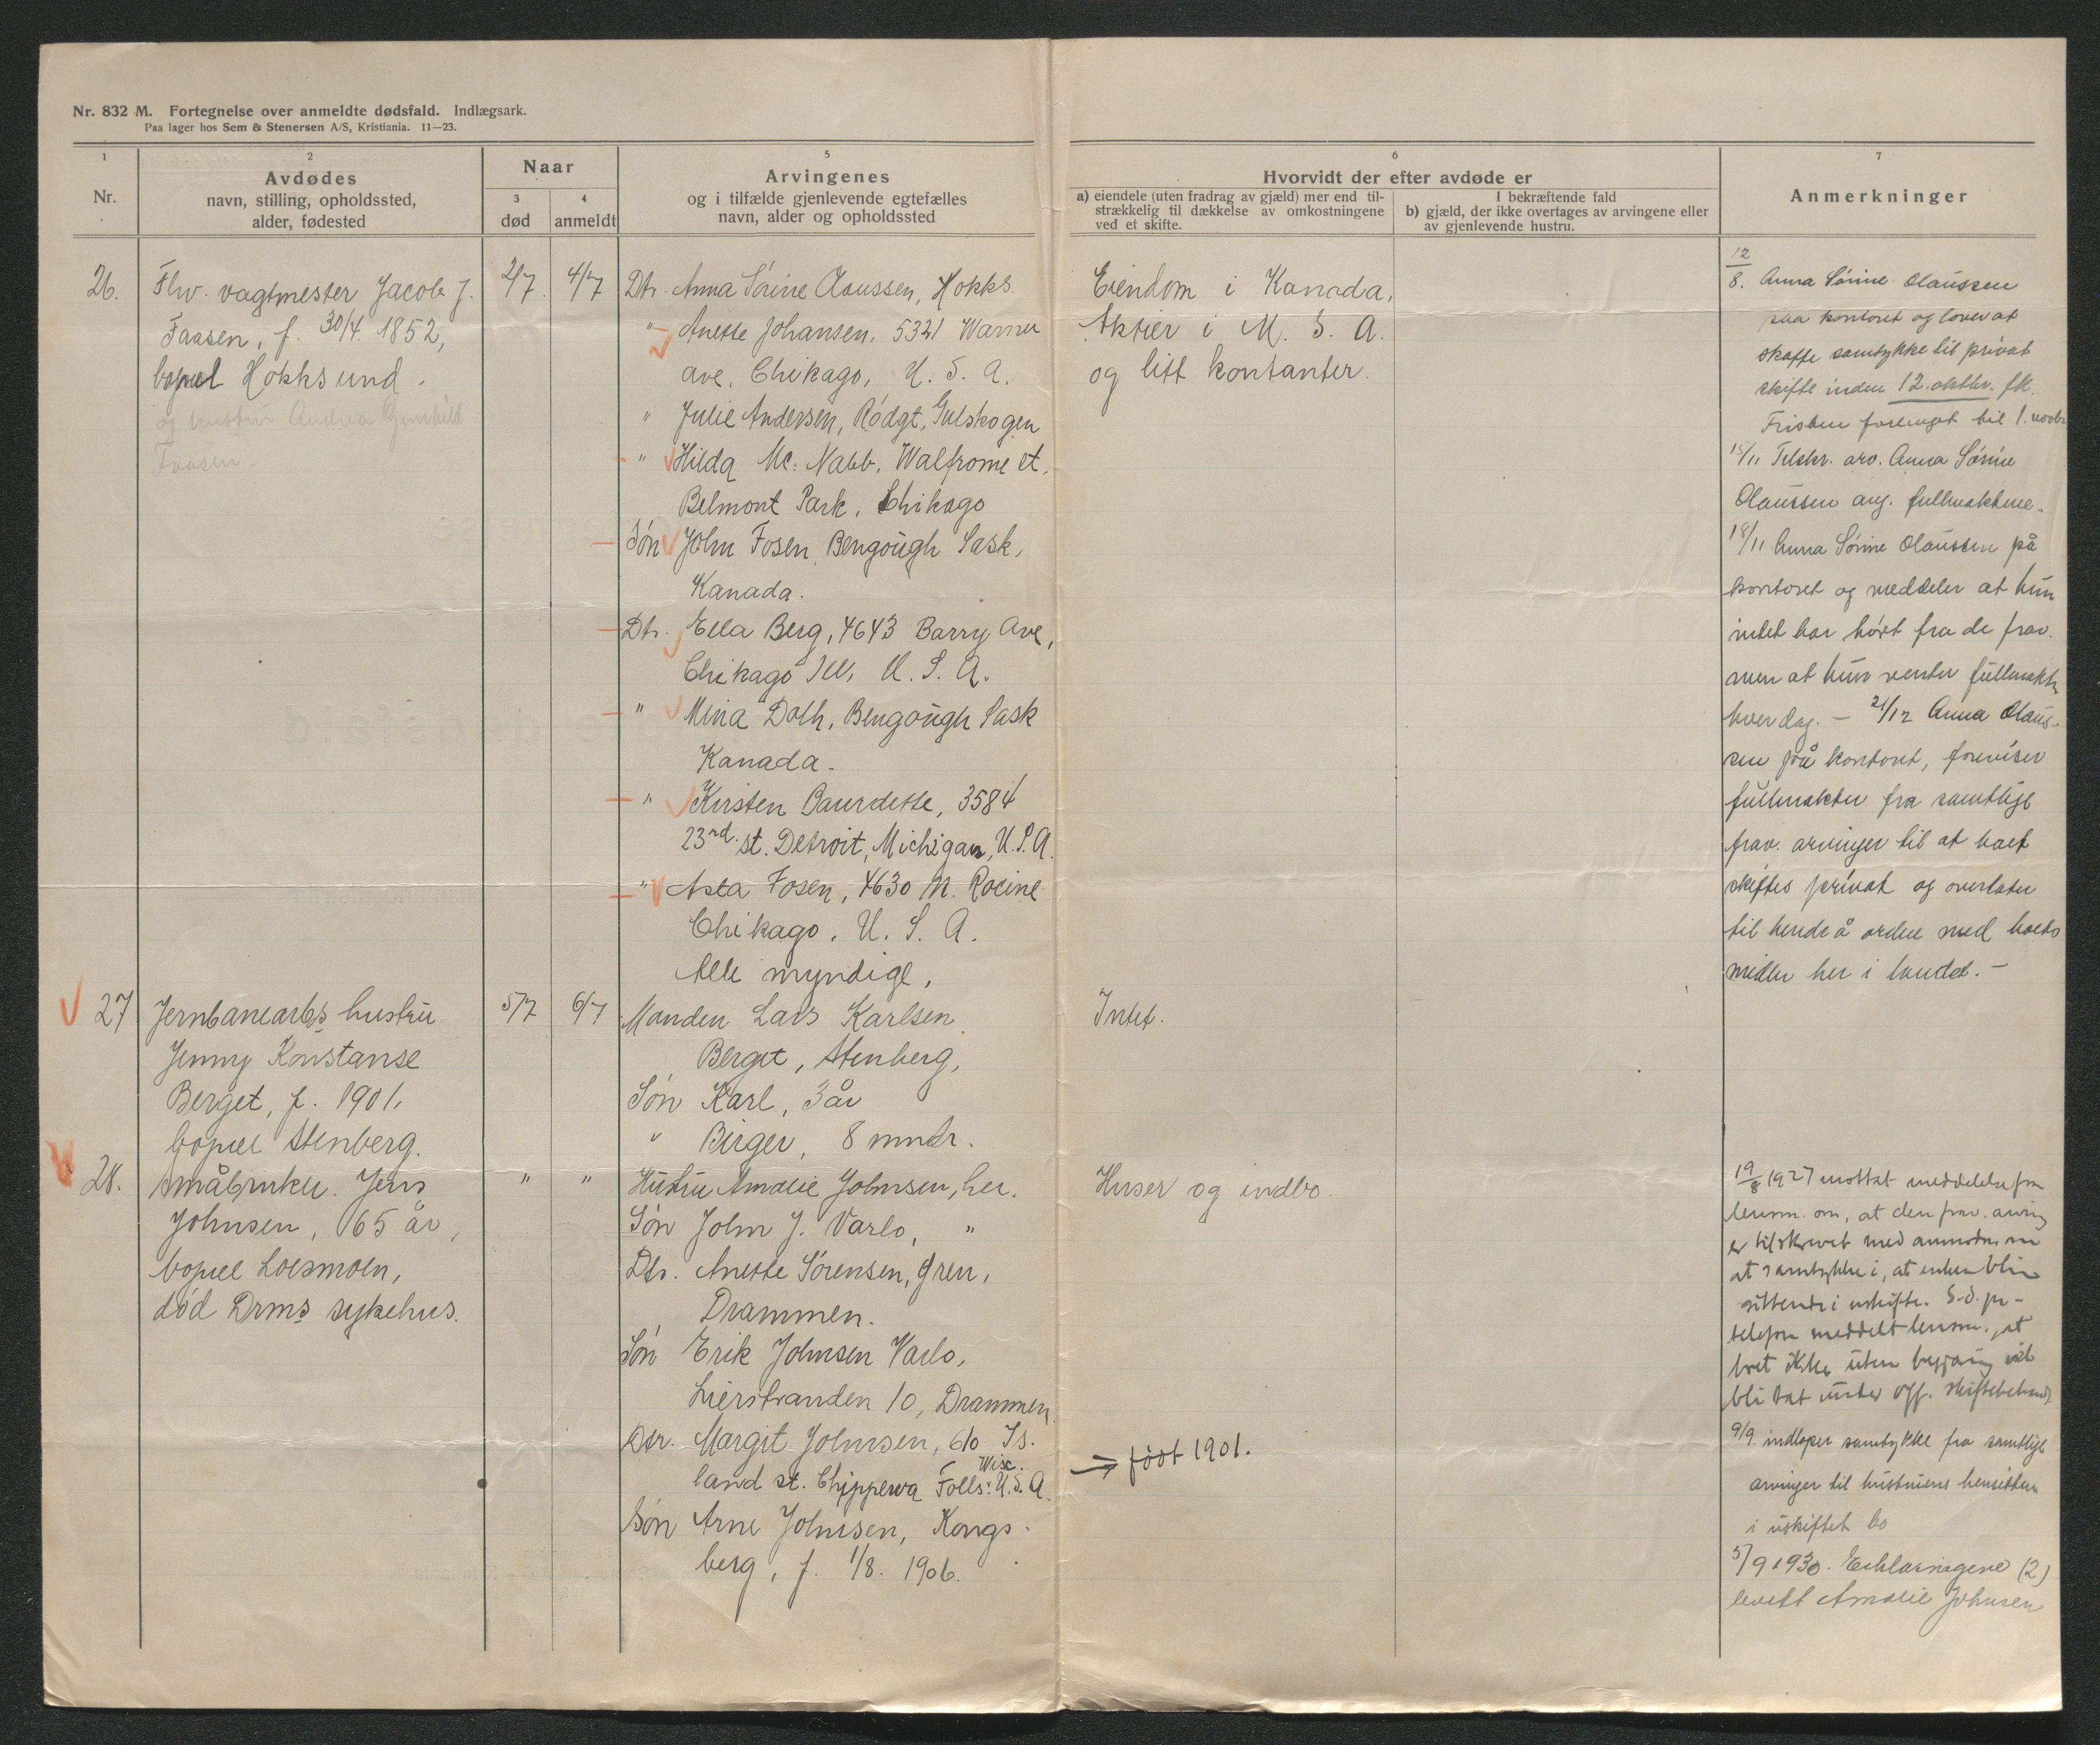 Nr. 832 M. Fortegnelse over anmeldte dødsfald. Indlægsark.
Paa lager hos Sem & Stenersen A/S, Kristiania. 11—23.
1
Nr.
2
Avdødes
navn, stilling, opholdssted,
alder, fødested
Naar
3
død
4
anmeldt
5
Arvingenes
og i tilfælde gjenlevende egtefælles
navn, alder og opholdssted
6
Hvorvidt der efter avdøde er
a) eiendele (uten fradrag av gjæld) mer end til-
strækkelig til dækkelse av omkostningene
ved et skifte.
I bekræftende fald
b) gjæld, der ikke overtages av arvingene eller
av gjenlevende hustru.
7
Anmerkninger
26.
Fhv. vagtmester Jacob J.
Faasen, f. 30/4 1852,
bopæl Hokksund.
og hustru Andrea Gunhild
Faasen.
2/7
4/7
Dtr. Anna Sørine Olaussen, Hokks.
" Anette Johansen, 5321 Warner
ave, Chikago, U. S. A.
" Julie Andersen, Rødgt, Gulskogen
" Hilda Mc. Nabb, Walfrome st.
Belmont Park, Chikago
Søn John Fosen, Bengough Sask,
Kanada.
Dtr. Ella Berg, 4643 Barry Ave,
Chikago Ill, U. S. A.
" Mina Doth, Bengough Sask
Kanada.
" Kirsten Baurdette, 3584
23rd. st. Detroit, Michigan, U.S.A.
" Asta Fosen, 4630 N. Racine
Chikago, U. S. A.
Alle myndige.
Eiendom i Kanada,
Aktier i U. S. A.
og litt kontanter.
12/8. Anna Sørine Olaussen
paa kontoret og lover at
skaffe samtykke til privat
skifte inden 12. oktbr. fk.
Fristen forlenget til 1. novbr
15/11 Tilskr. arv. Anna Sørine
Olaussen ang. fullmaktene.
18/11 Anna Sørine Olaussen på
kontoret og meddeler at hun
intet har hørt fra de frav.
men at hun venter fullmakter
hver dag. — 21/12 Anna Olaus-
sen på kontoret, foreviser
fullmakter fra samtlige
frav. arvinger til at boet
skiftes privat og overlater
til hende å ordne med boets
midler her i landet. —
27
Jernbanearb.s hustru
Jenny Konstanse
Berget, f. 1901.
bopæl Stenberg.
5/7
6/7
Manden Lars Karlsen
Berget, Stenberg,
Søn Karl, 3 år
" Birger, 8 mndr.
Intet.
28.
Småbruker Jens
Johnsen, 65 år,
bopæl Loesmoen,
død Drms sykehus.
"
"
Hustru Amalie Johnsen, her.
Søn John J. Varlo, "
Dtr. Anette Sørensen, Gren,
Drammen.
Søn Erik Johnsen Varlo,
Lierstranden 10, Drammen.
Dtr. Margit Johnsen, 610 Is-
land st. Chippewa Falls: Wisc. U.S.A.
Søn Arne Johnsen, Kongs-
berg, f. 1/8. 1906.
Huser og indbo.
→ født 1901.
19/8 1927 mottat meddelelse fra
lensm. om, at den frav. arving
er tilskrevet med anmodn. om
at samtykke i, at enken blir
sittende i uskifte. S.d. pr.
telefon meddelt lensm., at
boet ikke uten begjæring vil
bli tat under off. skiftebehandl.
9/9. indløper samtykke fra samtlige
arvinger til hustruens hensitten
i uskiftet bo
5/9 1930. Erklæringene (2)
levert Amalie Johnsen